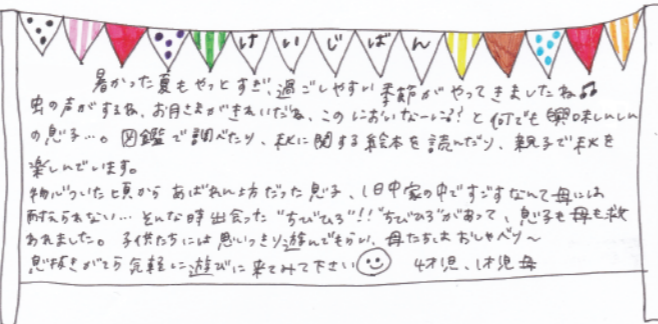 けいじばん
暑かった夏もやっとすぎ、過ごしやすい季節がやってきましたね♫
虫の声がするね、お月さまがきれいだね、このにおいなーに?と何でも興味しんしん
の息子…。図鑑で調べたり、秋に関する絵本を読んだり、親子で秋を
楽しんでいます。
物心ついた頃からあばれん坊だった息子、1日中家の中ですごすなんて母には
耐えられない…そんな時出会った"ちびひろ"!!"ちびひろ"があって、息子も母も救
われました。子供たちには思いっきり遊んでもらい、母たちはおしゃべり〜
息抜きがてら気軽に遊びに来てみて下さい☺ 4才児、1才児母